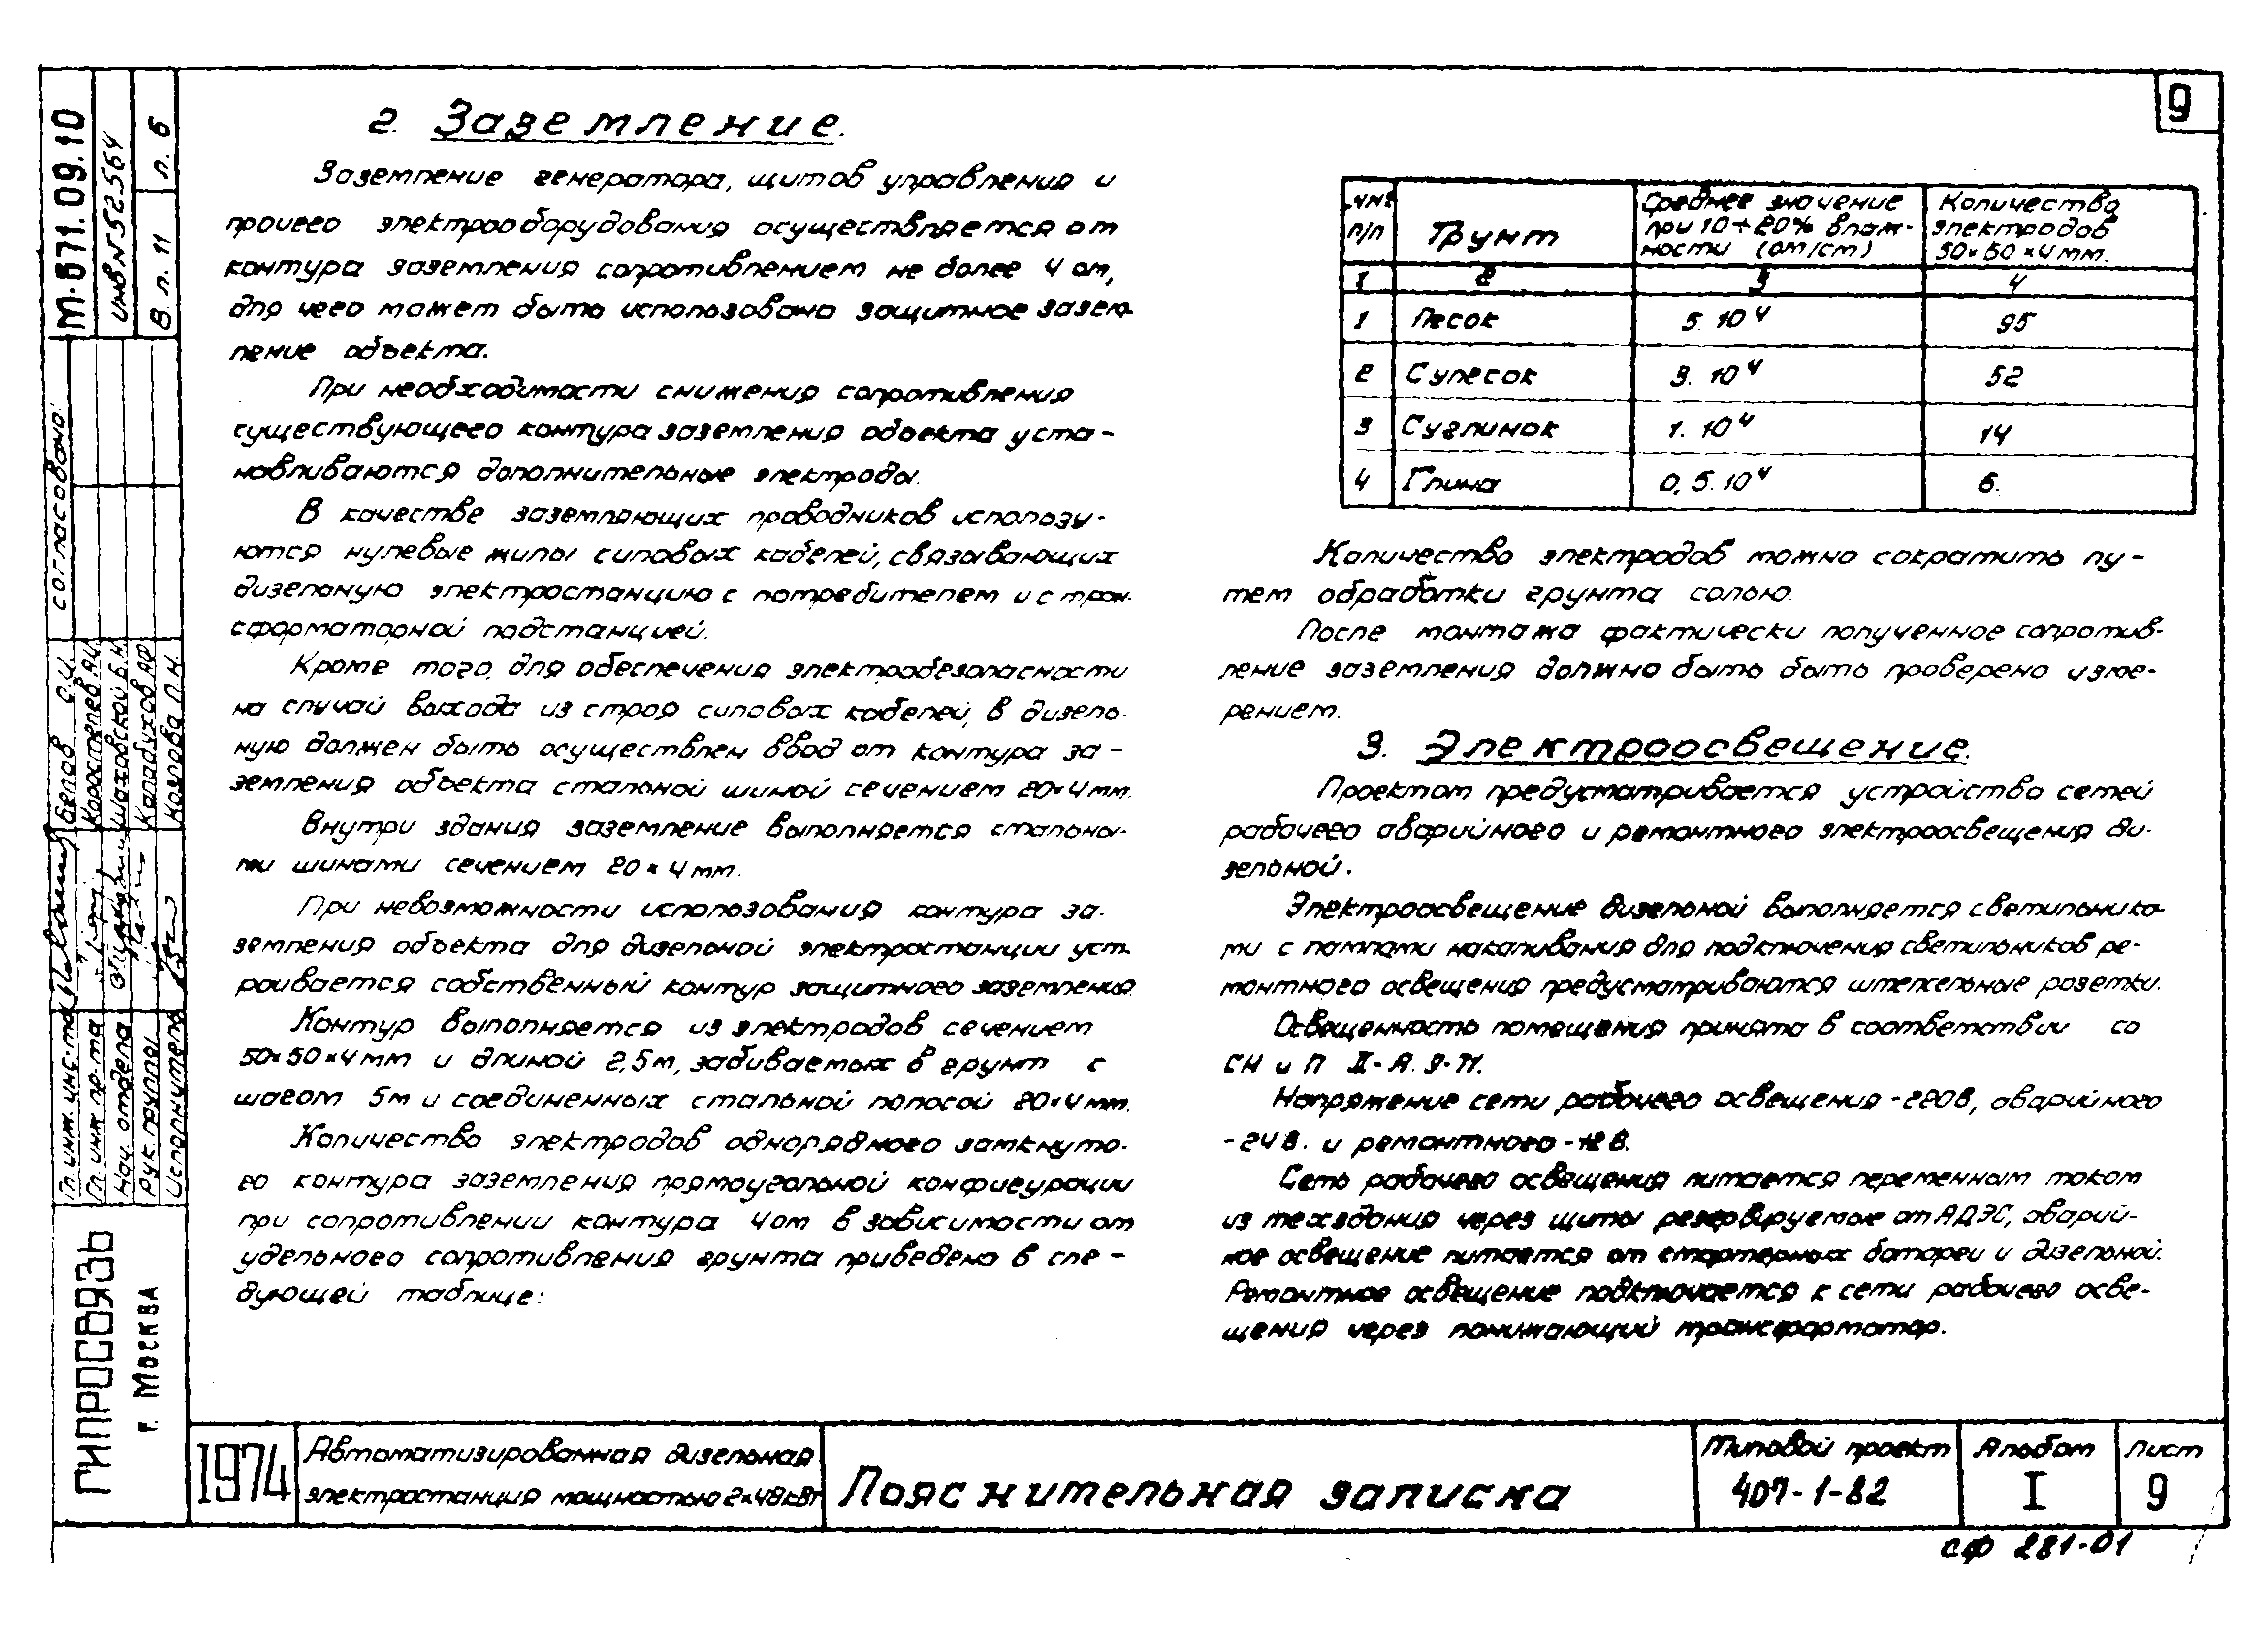 9
2. Заземление.
Заземление генератора, щитов управления и
прочего электрооборудования осуществляется от
контура заземления сопротивлением не более 4 ом,
для чего может быть использовано защитное зазем-
ление объекта.
При необходимости снижения сопротивления
существующего контура заземления объекта уста-
навливаются дополнительные электроды.
В качестве заземляющих проводников использу-
ются нулевые жилы силовых кабелей, связывающих
дизельную электростанцию с потребителем и с тран-
сформаторной подстанцией.
Кроме того, для обеспечения электробезопасности
на случай выхода из строя силовых кабелей, в дизель-
ную должен быть осуществлен ввод от контура за-
земления объекта стальной шиной сечением 20×4 мм.
Внутри здания заземление выполняется стальны-
ми шинами сечением 20×4 мм.
При невозможности использования контура за-
земления объекта для дизельной электростанции уст-
раивается собственный контур защитного заземления.
Контур выполняется из электродов сечением
50×50×4 мм и длиной 2,5 м, забиваемых в грунт с
шагом 5м и соединенных стальной полосой 20×4 мм.
Количество электродов однорядного замкнуто-
го контура заземления прямоугольной конфигурации
при сопротивлении контура 4ом в зависимости от
удельного сопротивления грунта приведено в сле-
дующей таблице:
№№ п/п | Грунт | Среднее значение при 10÷20% влаж-ности (ом/см) | Количество электродов 50×50×4 мм.
I | 2 | 3 | 4
1 | Песок | 5.10⁴ | 95
2 | Супесок | 3.10⁴ | 52
3 | Суглинок | 1.10⁴ | 14
4 | Глина | 0,5.10⁴ | 6.
Количество электродов можно сократить пу-
тем обработки грунта солью.
После монтажа фактически полученное сопротив-
ление заземления должно быть быть проверено изме-
рением.
3. Электроосвещение.
Проектом предусматривается устройство сетей
рабочего аварийного и ремонтного электроосвещения ди-
зельной.
Электроосвещение дизельной выполняется светильника-
ми с лампами накаливания для подключения светильников ре-
монтного освещения предусматриваются штепсельные розетки.
Освещенность помещения принята в соответствии со
СН и П II-А. 9-71.
Напряжение сети рабочего освещения -220в, аварийного
-24в. и ремонтного -12в.
Сеть рабочего освещения питается переменным током
из техздания через щиты резервируемые от АДЭС, аварий-
ное освещение питается от стартерных батареи и дизельной.
Ремонтное освещение подключается к сети рабочего осве-
щения через понижающий трансформатор.
т.571.09.10
инв N 52.564
В л. 11 | л. 6
согласовано:
Гл. инж. инс-та | Белов С.И.
Гл. инж пр-та | Коростелев А.И.
Нач. отдела | Шаховской Б.Н.
Рук. группы | Калабухов А.Ф.
Исполнитель | Козлова Л.Н.
ГИПРОСВЯЗЬ
г. Москва
1974
Автоматизированная дизельная
электростанция мощностью 2×48кВт
Пояснительная записка
Типовой проект
407-1-82
Альбом
I
Лист
9
сф 281-01